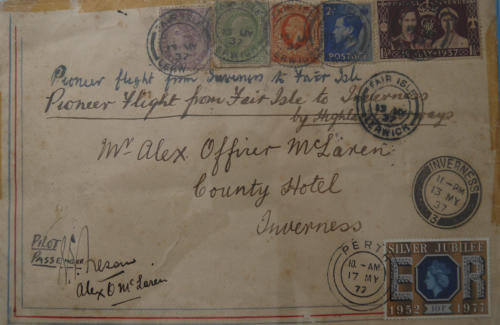 FAIR ISLE
13 MY
37
LERWICK
2½D
12 MAY 1937
Pioneer flight from Inverness to Fair Isle
Pioneer Flight from Fair Isle to Inverness
by Highland Airways
FAIR ISLE
13 MY
37
LERWICK
Mr Alex Offirer McLaren
County Hotel
Inverness
INVERNESS
11 - PM
13 MY
37
3
PILOT
PASSENGER
Alex O McLaren
PERTH
10. - AM
17 MY
77
SILVER JUBILEE
E R
1952 10P 1977